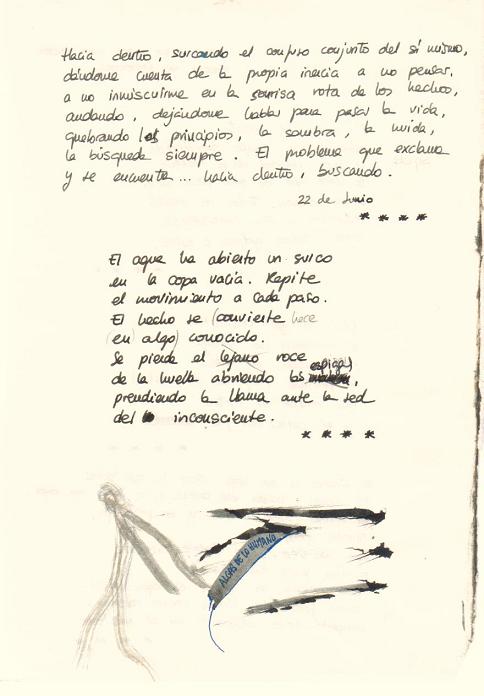 Hacia dentro, surcando el confuso conjunto del sí mismo,
dándome cuenta de la propia inercia a no pensar,
a no inmiscuirme en la sonrisa rota de los hechos,
andando, dejándome hablar para pasar la vida,
quebrando los principios, la sombra, la huida,
la búsqueda siempre. El problema que exclama
y se encuentra... hacia dentro, buscando.
22 de Junio
* * * *
El agua ha abierto un surco
en la copa vacía. Repite
el movimiento a cada paso.
El hecho se (convierte hace
(en) algo) conocido.
Se pierde el lejano roce
espigas
de la huella abriendo las ,
prendiendo la llama ante la sed
del inconsciente.
* * * *
ALGAS DE LO HUMANO